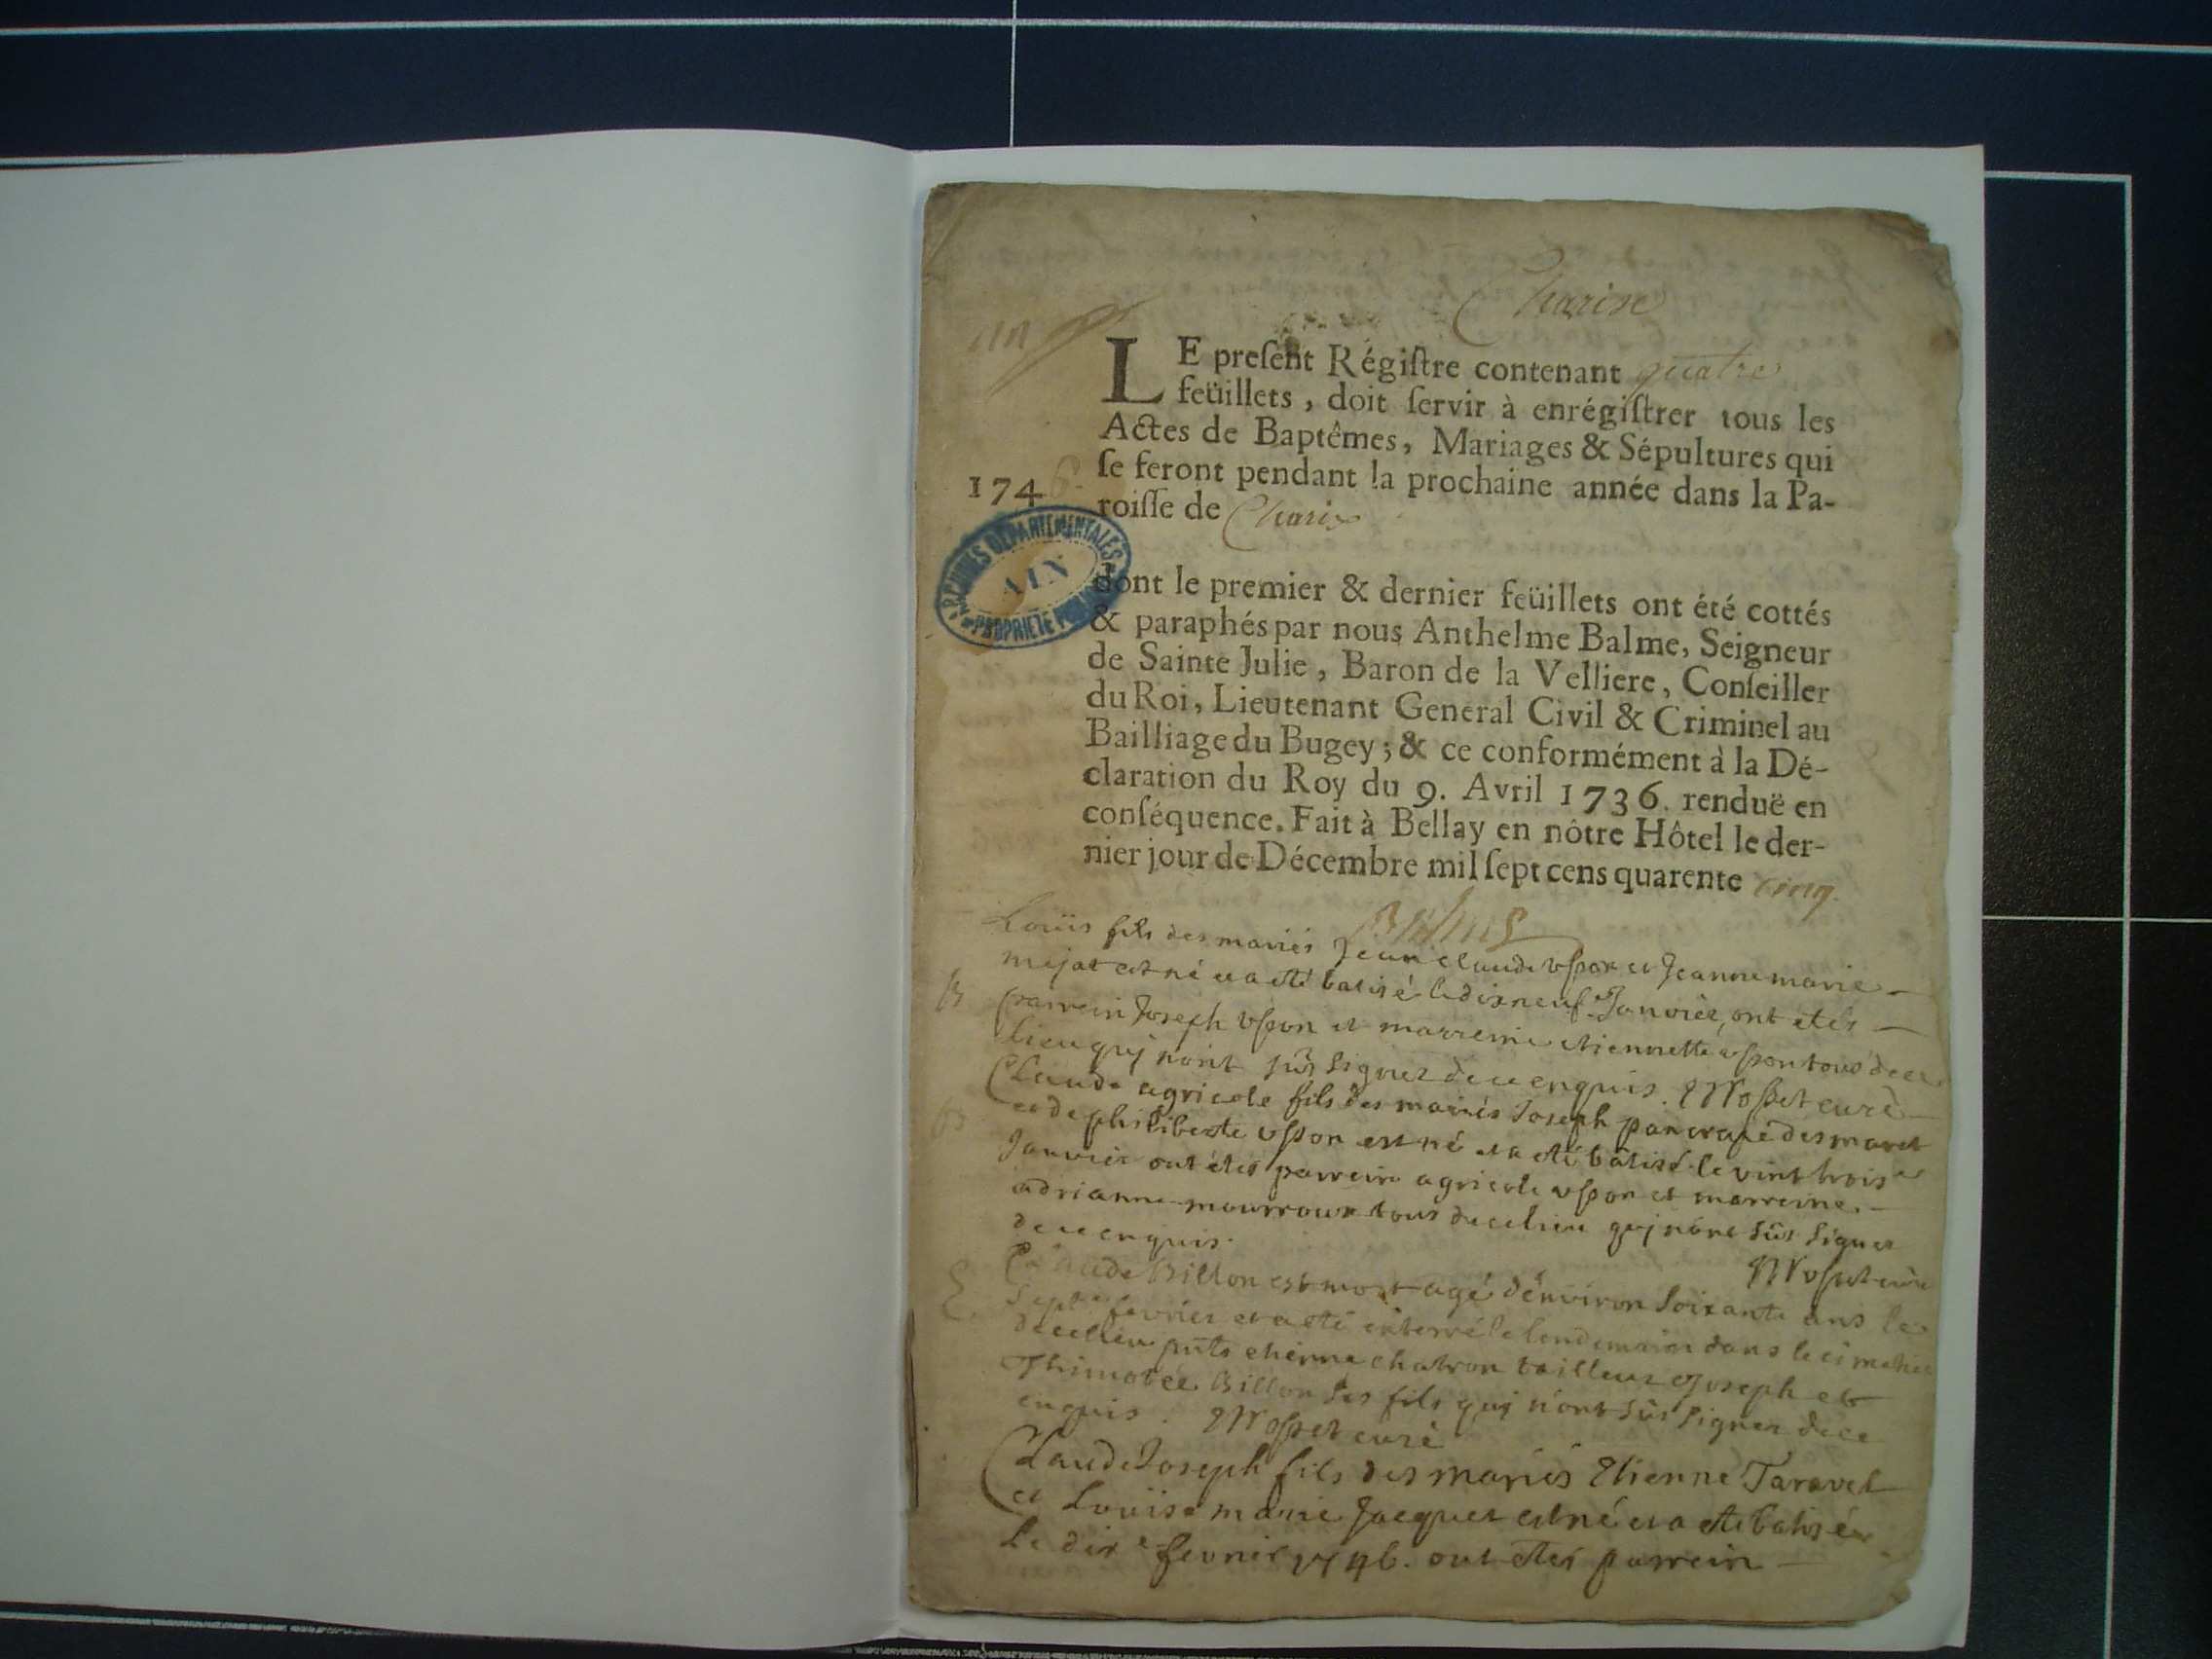 Charix
LE preſent Régiſtre contenant quatre
feüillets, doit ſervir à enrégiſtrer tous les
Actes de Baptêmes, Mariages & Sépultures qui
ſe feront pendant la prochaine année dans la Pa-
1746
roiſſe de Charix
ARCHIVES DÉPARTEMENTALES
AIN
PROPRIÉTÉ PUBLIQUE
dont le premier & dernier feüillets ont été cottés
& paraphés par nous Anthelme Balme, Seigneur
de Sainte Julie, Baron de la Velliere, Conſeiller
du Roi, Lieutenant General Civil & Criminel au
Bailliage du Bugey; & ce conformément à la Dé-
claration du Roy du 9. Avril 1736. renduë en
conſéquence. Fait à Bellay en nôtre Hôtel le der-
nier jour de Décembre mil ſept cens quarente cinq.
Balme
Louïs fils des mariés Jean claude et Jeanne marie
est né et a eté batisé le dix neuf Janvier, ont etés
B parrein Joseph et marreine etiennette tous de ce
lieu quj n'ont sûs signer de ce enquis. curé
Claude agricole fils des mariés Joseph pancrace desmaret
B et de philiberte est né et a eté bâtisé le vint trois
Janvier ont étés parrein agricole et marreine
adrianne tous de ce lieu quj n'ont sûs signer
de ce enquis. curé
Claude Billon est mort agé d'environ soixante ans le
S sept fevrier et a eté enterré le lendemain dans le cimetiere
de ce lieu etienne chatron tailleur Joseph et
Thimotée Billon ses fils quj n'ont sûs signer de ce
enquis. curé
Claude Joseph fils des mariés Etienne Taravel
et Louïse marie Jacquet est né et a eté batisé
le dix fevrier 1746. ont etés parrein